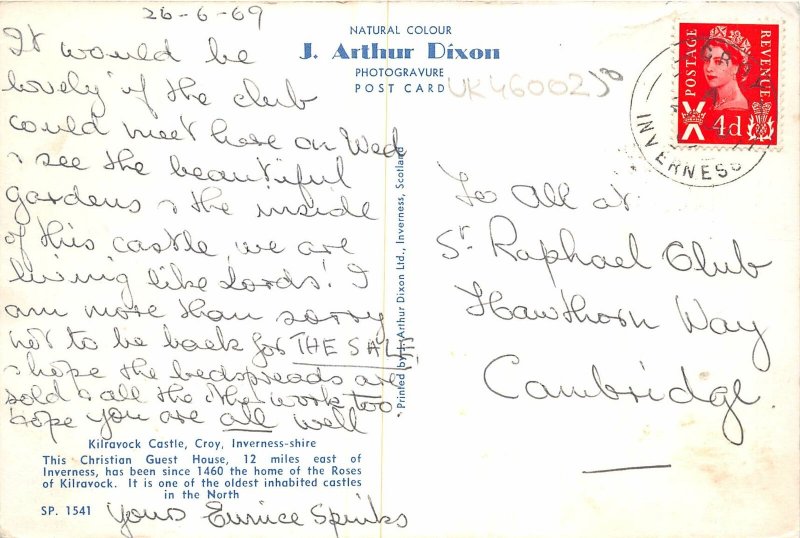 26-6-69
It would be
lovely if the club
could meet here on Wed
& see the beautiful
gardens & the inside
of this castle, we are
living like Lords! I
am more than sorry
not to be back for THE SALE!
& hope the bedspreads are
sold & all the other work too
hope you are all well
Yours Eunice Spinks
NATURAL COLOUR
J. Arthur Dixon
PHOTOGRAVURE
POST CARD
UK46002
Printed by J. Arthur Dixon Ltd., Inverness, Scotland.
POSTAGE
REVENUE
4d
INVERNESS
To All at
St. Raphael Club
Hawthorn Way
Cambridge
Kilravock Castle, Croy, Inverness-shire
This Christian Guest House, 12 miles east of
Inverness, has been since 1460 the home of the Roses
of Kilravock. It is one of the oldest inhabited castles
in the North
SP. 1541